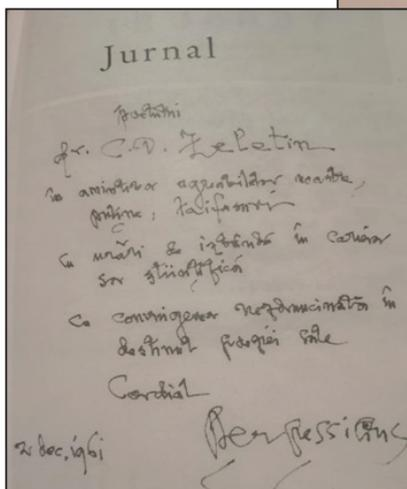 Jurnal
Poetului
dr. C.D. Zeletin
în amintirea agreabilelor noastre,
puține, taifasuri
cu urări de izbândă în cariera
sa științifică
cu convingerea nezdruncinată în
destinul poeziei sale
Cordial
Perpessicius
2 dec. 1961